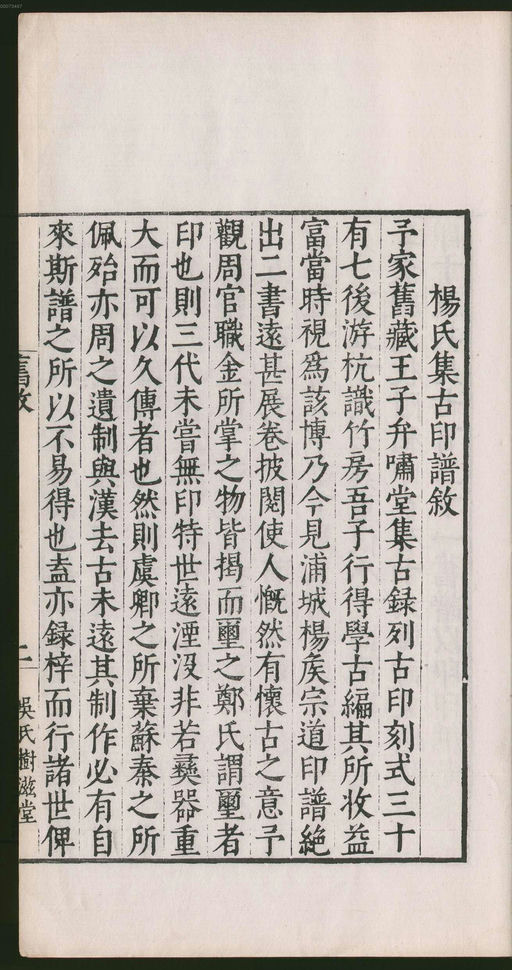 楊氏集古印譜敘
予家舊藏王子弁嘯堂集古録列古印刻式三十
有七後游杭識竹房吾子行得學古編其所收益
富當時視爲該博乃今見浦城楊矦宗道印譜絶
出二書遠甚展卷披閱使人慨然有懷古之意予
觀周官職金所掌之物皆揭而璽之鄭氏謂璽者
印也則三代未嘗無印特世遠湮没非若彝器重
大而可以久傳者也然則虞卿之所棄蘇秦之所
佩殆亦周之遺制與漢去古未遠其制作必有自
來斯譜之所以不易得也盍亦録梓而行諸世俾
舊敘
二
吳氏樹滋堂
00073467